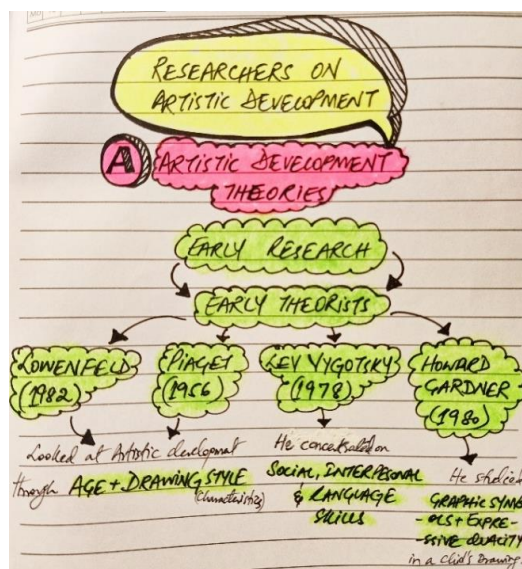 RESEARCHERS ON
ARTISTIC DEVELOPMENT
A
ARTISTIC DEVELOPMENT
THEORIES
EARLY RESEARCH
EARLY THEORISTS
LOWENFELD
(1982)
PIAGET
(1956)
LEV VYGOTSKY
(1978)
HOWARD
GARDNER
(1980)
Looked at Artistic development
through AGE + DRAWING STYLE
(characteristics)
He concentrated on
SOCIAL, INTERPESONAL
& LANGUAGE
SKILLS
He studied
GRAPHIC SYMB
-OLS + EXPRE-
-SSIVE QUALITY
in a Child's Drawing.